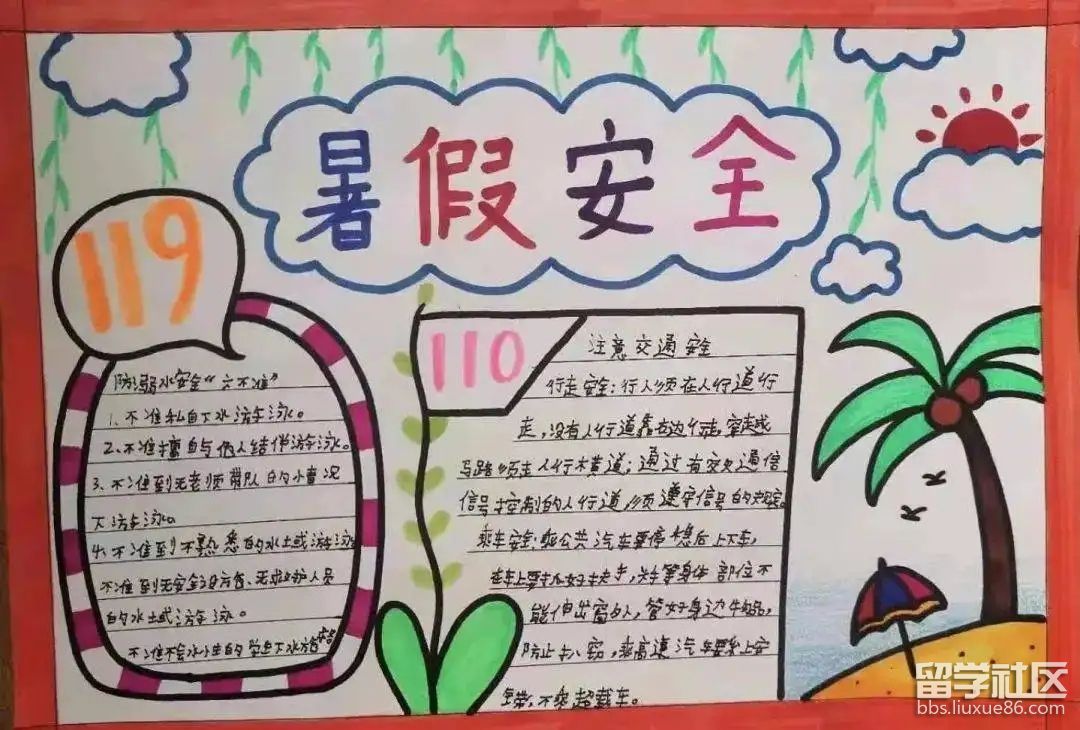 暑假安全
119
防溺水安全“六不准”
1、不准私自下水游泳。
2、不准擅自与他人结伴游泳。
3、不准到无老师带队的小情况
下游泳。
4、不准到不熟悉的水土或游泳
不准到无安全设方省、无救护人员
的水土或游泳。
不准不会水小生的学自下水方省
110
注意交通安全
行走安全：行人须在人行道行
走，没有人行道靠右边行走。穿越
马路须走人行木黄道；通过有交通信
信号控制的人行道，须遵守信号的规定。
乘车安全：乘公共汽车要停稳后上下车，
在车上要扶好，身体部位不
能伸出窗外，管好身边牛物品，
防止扒窃，乘高速汽车要系上安
全带，不乘超载车。
留学社区
bbs.liuxue86.com